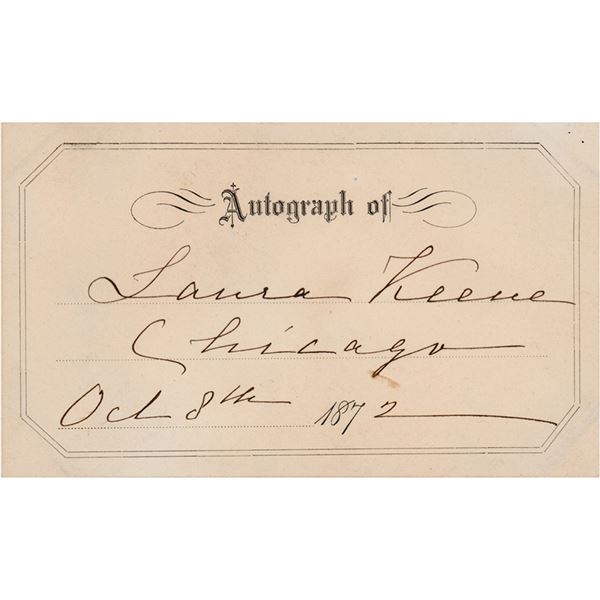 Autograph of
Laura Keene
Chicago
Oct 8th 1872